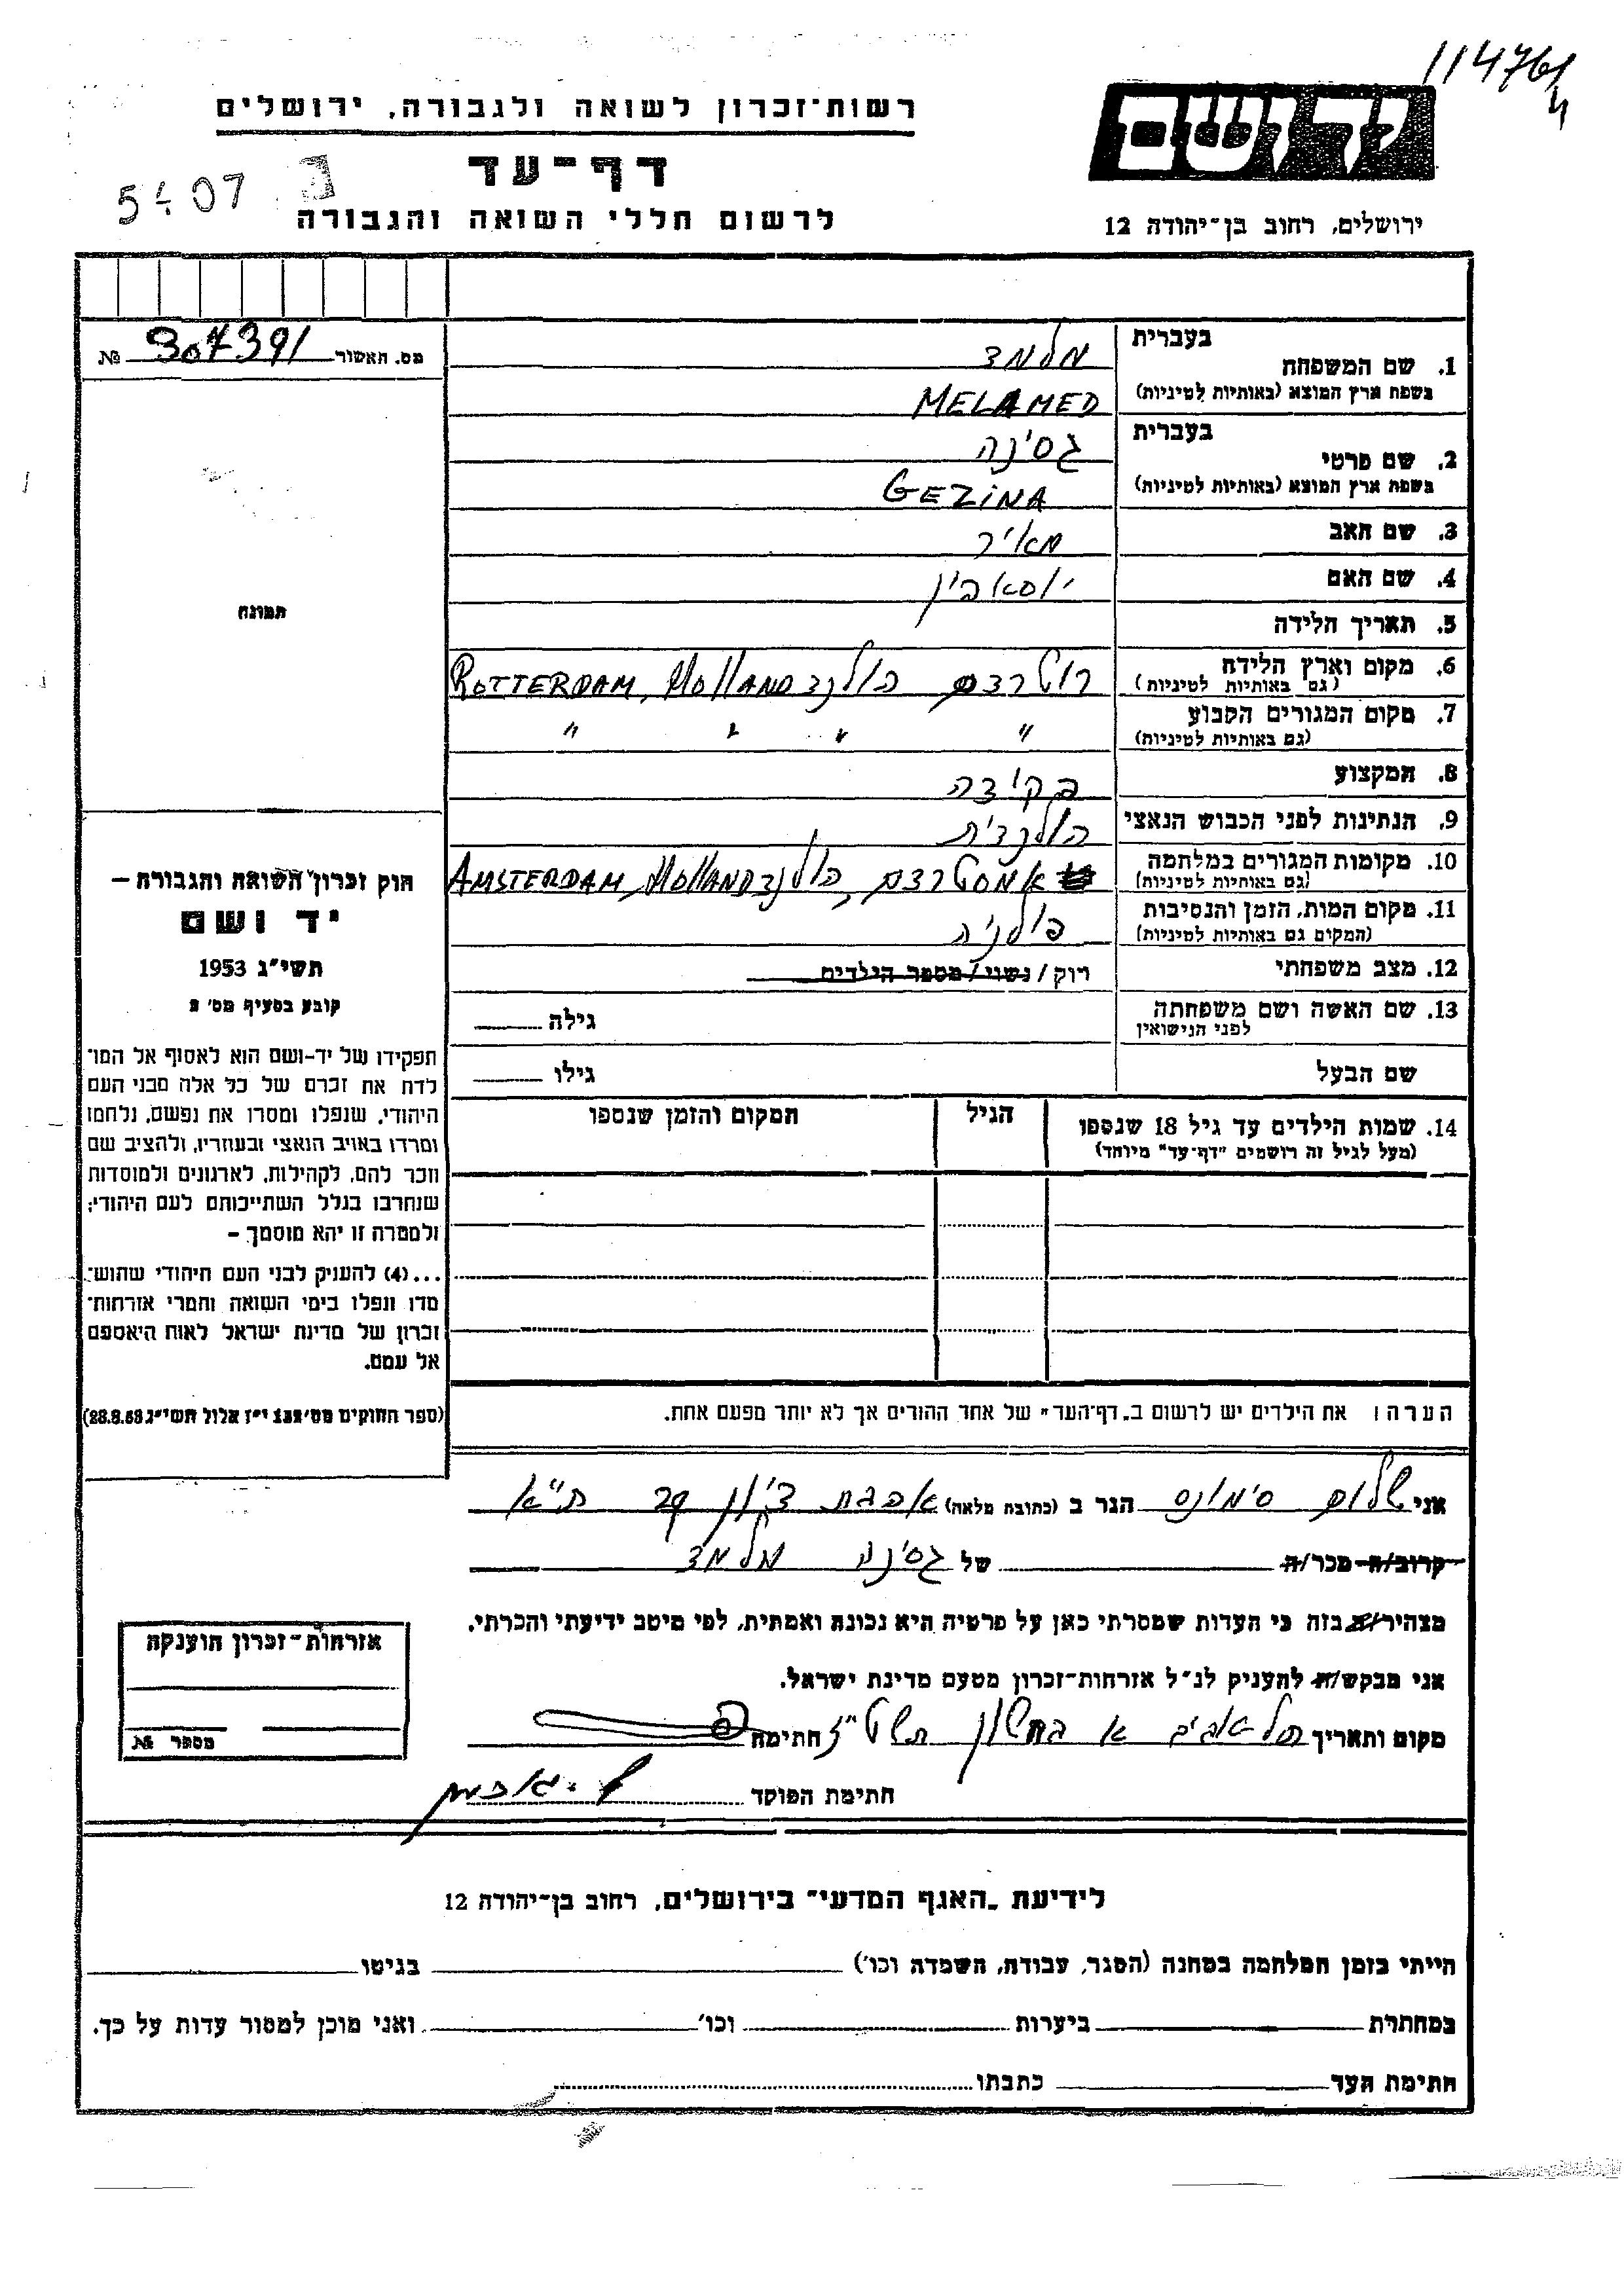 114761/4
רשות־זכרון לשואה ולגבורה, ירושלים
יד ושם
דף־עד
07
לרשום חללי השואה והגבורה
ירושלים, רחוב בן־יהודה 12
מס. האשור № 307391
1. שם המשפחה בעברית מלמד
בשפת ארץ המוצא (באותיות לטיניות) MELAMED
2. שם פרטי בעברית גסינה
בשפת ארץ המוצא (באותיות לטיניות) GEZINA
3. שם האב מאיר
4. שם האם
5. תאריך הלידה
6. מקום וארץ הלידה (גם באותיות לטיניות) רוטרדם הולנד ROTTERDAM, HOllAND
7. מקום המגורים הקבוע (גם באותיות לטיניות) " " " "
8. המקצוע פקידה
9. הנתינות לפני הכבוש הנאצי הולנדית
10. מקומות המגורים במלחמה (גם באותיות לטיניות) אמסטרדם, הולנד AMSTERDAM, HOllAND
11. מקום המות, הזמן והנסיבות (המקום גם באותיות לטיניות) פולניה
12. מצב משפחתי רוק / נשוי / מספר הילדים
13. שם האשה ושם משפחתה לפני הנישואין גילה
שם הבעל גילו
14. שמות הילדים עד גיל 18 שנספו הגיל המקום והזמן שנספו
(מעל לגיל זה רושמים "דף־עד" מיוחד)
תמונה
חוק זכרון השואה והגבורה —
יד ושם
תשי״ג 1953
קובע בסעיף מס׳ 2
תפקידו של יד-ושם הוא לאסוף אל המו־
לדת את זכרם של כל אלה מבני העם
היהודי, שנפלו ומסרו את נפשם, נלחמו
ומרדו באויב הנאצי ובעוזריו, ולהציב שם
וזכר להם, לקהילות, לארגונים ולמוסדות
שנחרבו בגלל השתייכותם לעם היהודי;
ולמטרה זו יהא מוסמך —
...(4) להעניק לבני העם היהודי שהוש־
מדו ונפלו בימי השואה והמרי אזרחות־
זכרון של מדינת ישראל לאות היאספם
אל עמם.
(ספר החוקים מס׳ 132 י״ז אלול תשי״ג 28.8.53)
הערה: את הילדים יש לרשום ב„דף־העד״ של אחד ההורים אך לא יותר מפעם אחת.
אני שלום סימונס הגר ב (כתובת מלאה) אהבת ציון 29 ת"א
קרוב/ה מכר/ה של גסינה מלמד
מצהיר/ה בזה כי העדות שמסרתי כאן על פרטיה היא נכונה ואמתית, לפי מיטב ידיעתי והכרתי.
אני מבקש/ת להעניק לנ״ל אזרחות־זכרון מטעם מדינת ישראל.
מקום ותאריך תל אביב א בחשון תשט"ז חתימה
חתימת הפוקד
אזרחות־זכרון הוענקה
מספר №
לידיעת „האגף המדעי״ בירושלים, רחוב בן־יהודה 12
הייתי בזמן המלחמה במחנה (הסגר, עבודה, השמדה וכו׳) בגיטו
במחתרת ביערות וכו׳ ואני מוכן למסור עדות על כך.
חתימת העד כתבתו